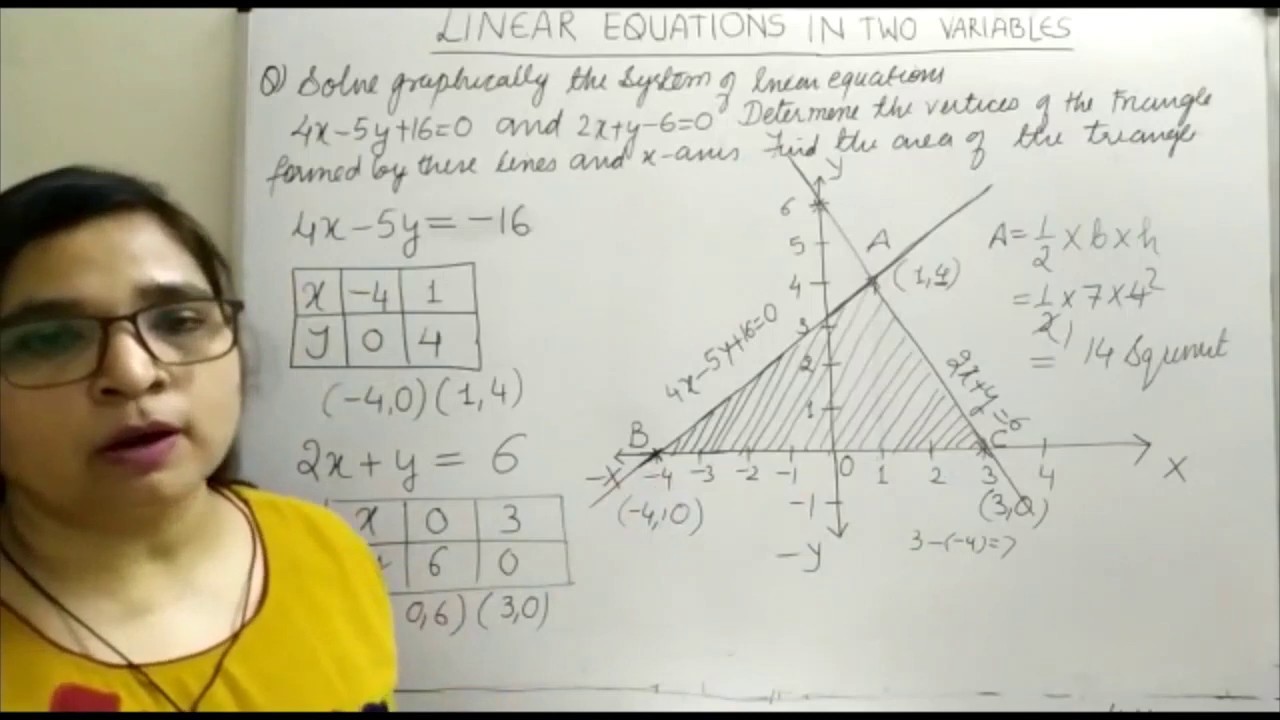 LINEAR EQUATIONS IN TWO VARIABLES
Q) Solve graphically the system of linear equations
4x-5y+16=0 and 2x+y-6=0 Determine the vertices of the triangle
formed by these lines and x-axis Find the area of the triangle
4x-5y=-16
X -4 1
Y 0 4
(-4,0)(1,4)
2x+y=6
x 0 3
6 0
0,6)(3,0)
y
6
5
4
3
2
1
A
(1,4)
4x-5y+16=0
2x+y=6
B
C
-X -4 -3 -2 -1 0 1 2 3 4 X
(-4,0)
(3,0)
-1
-y
3-(-4)=7
A=1/2×b×h
=1/2×7×4 2
1
= 14 Sq unit